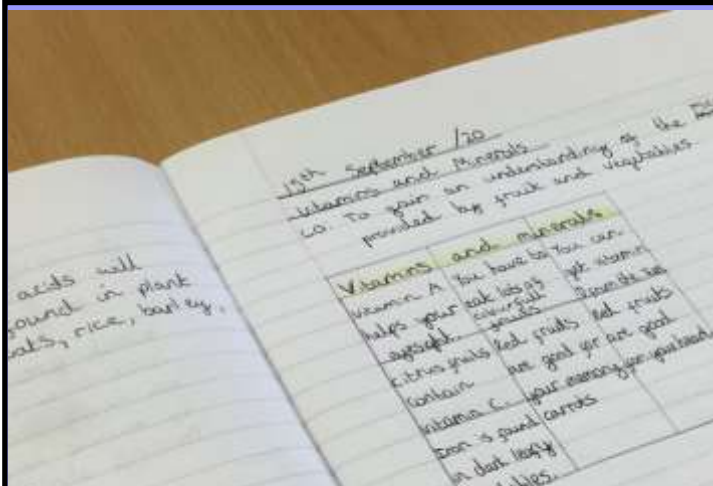 acids will
found in plant
oats, rice, barley,
15th September /20
Vitamins and Minerals
LO. To gain an understanding of the
provided by fruit and vegetables.
Vitamins and minerals
Vitamin A
helps your
eyesight.
You have to
eat lots of
colourful
fruits
You can
get vitamin
D from the sun
Citrus fruits
contain
vitamin C.
Red fruits
are good for
your memory
Red fruits
are good
for your heart
Iron is found
in dark leafy
carrots